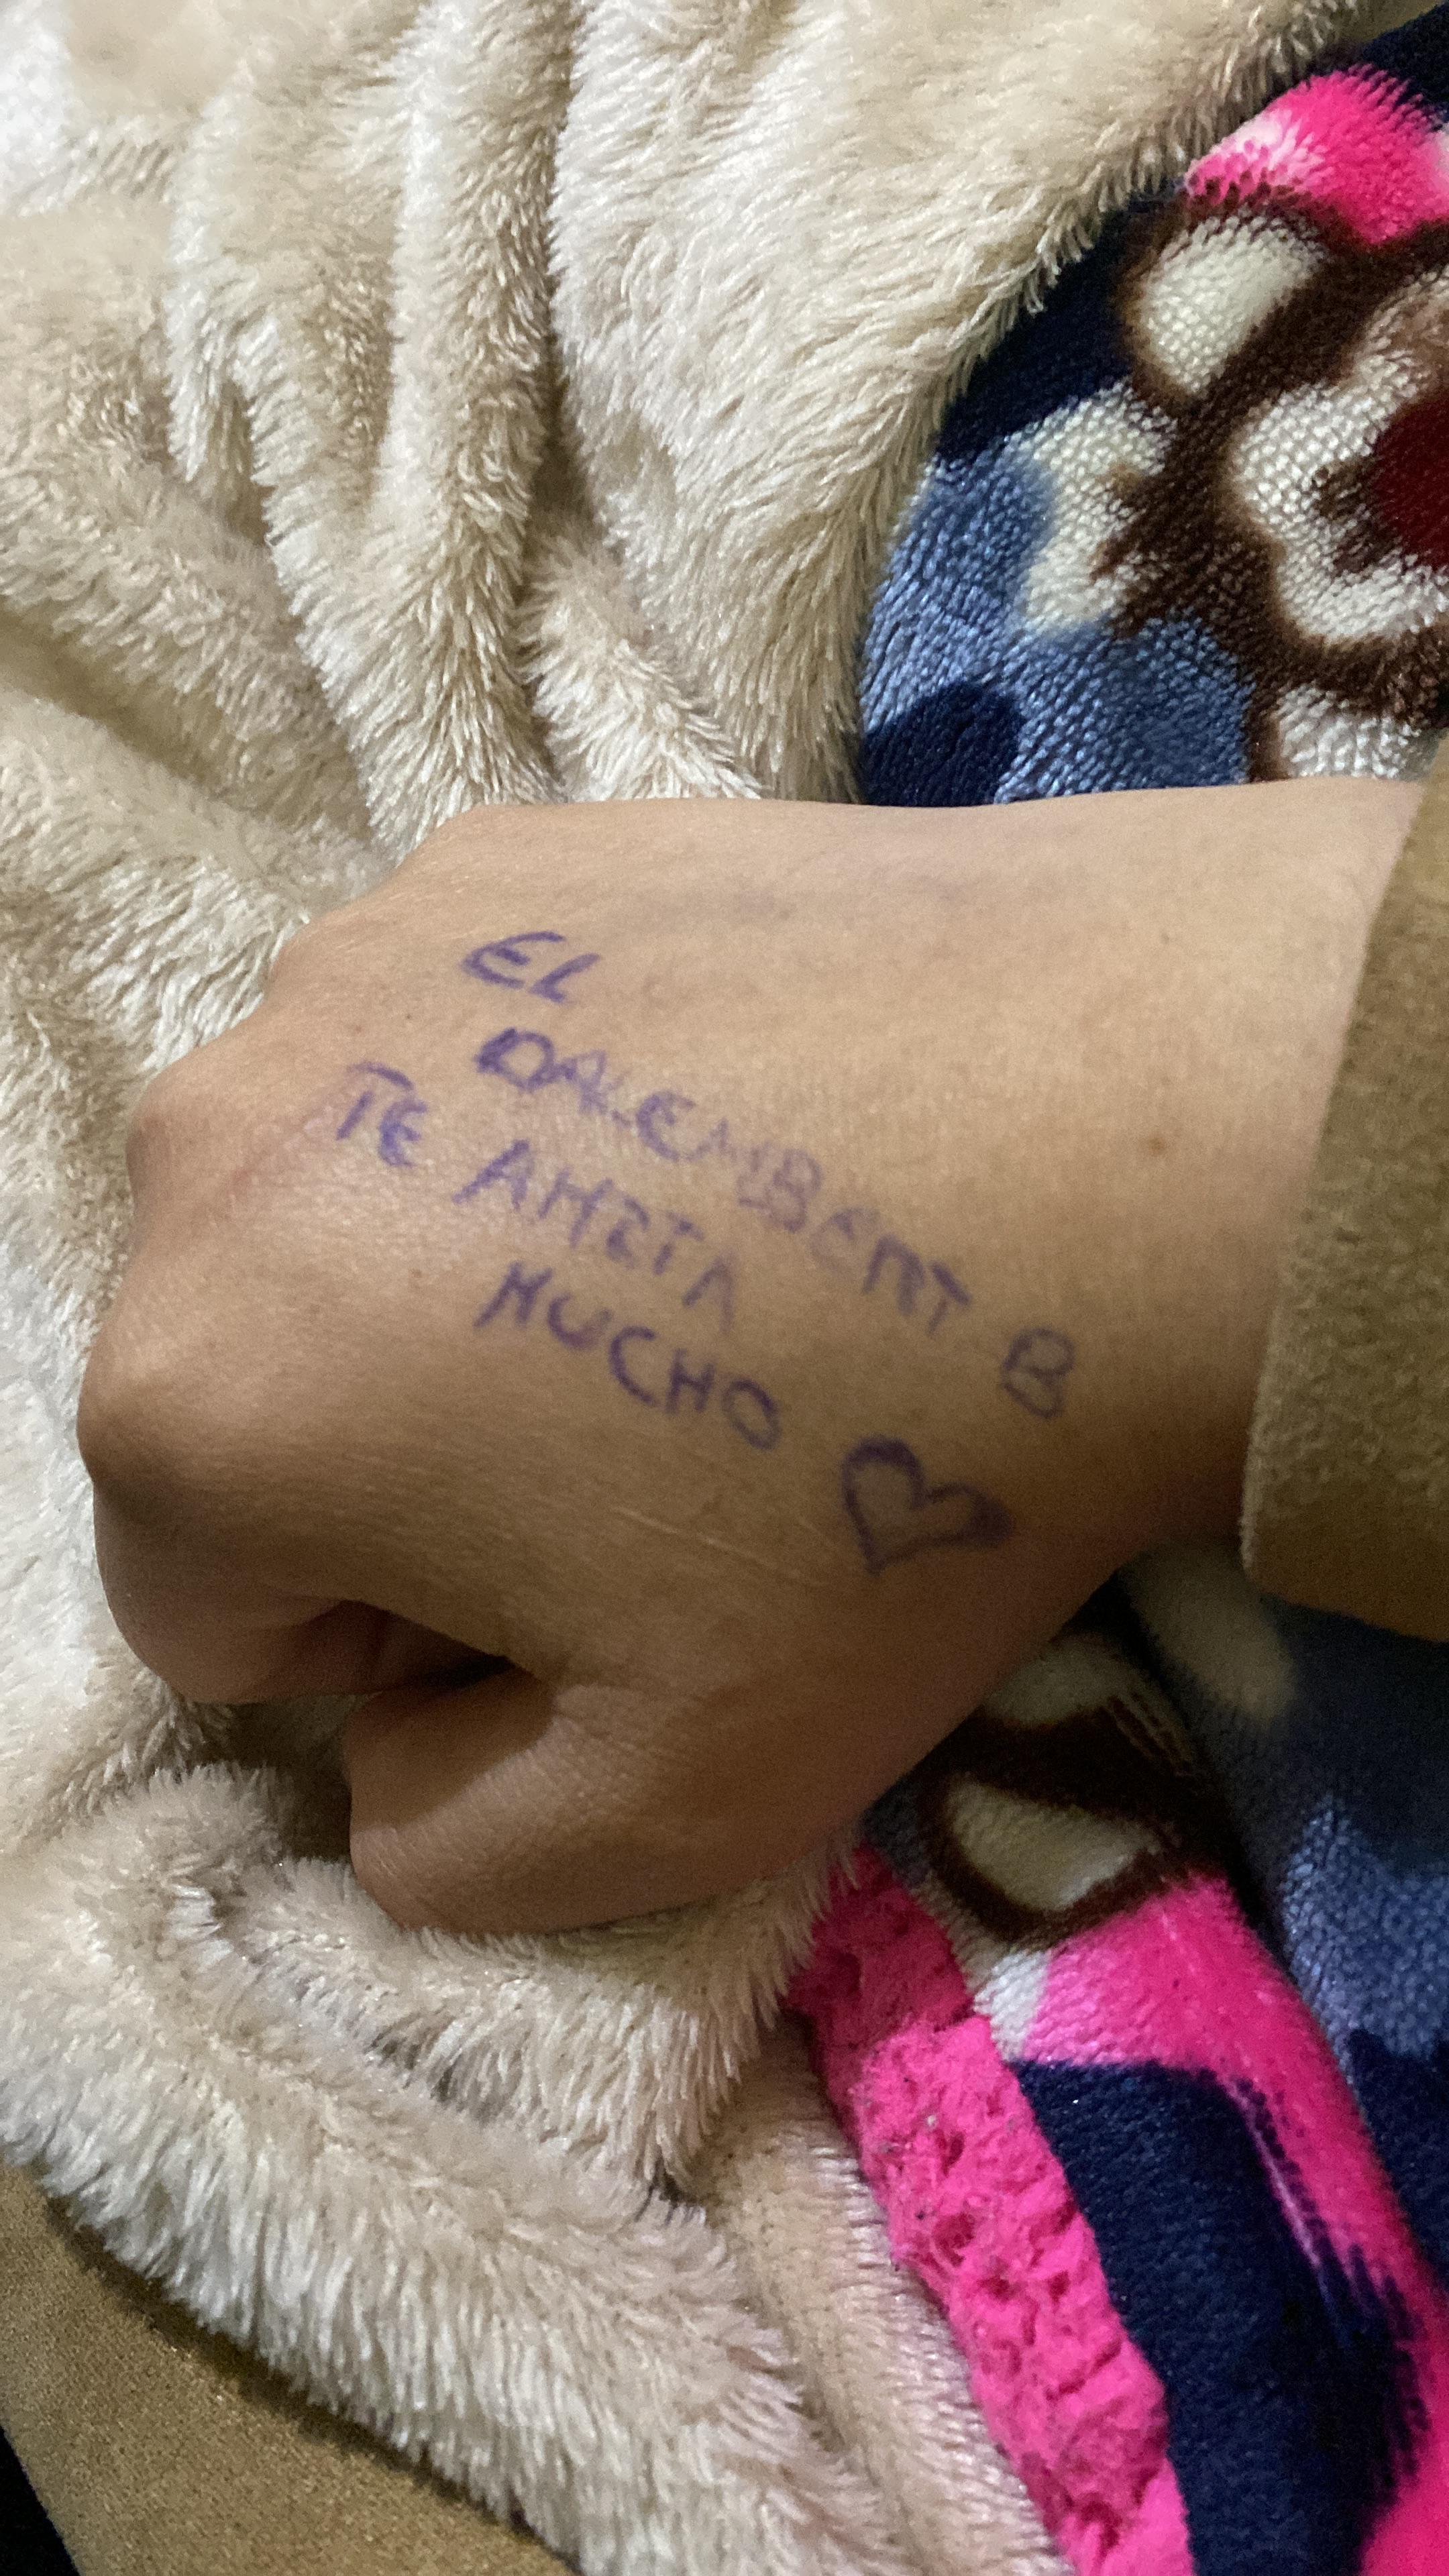 EL
DALEMBERT B
TE AMETA
MUCHO